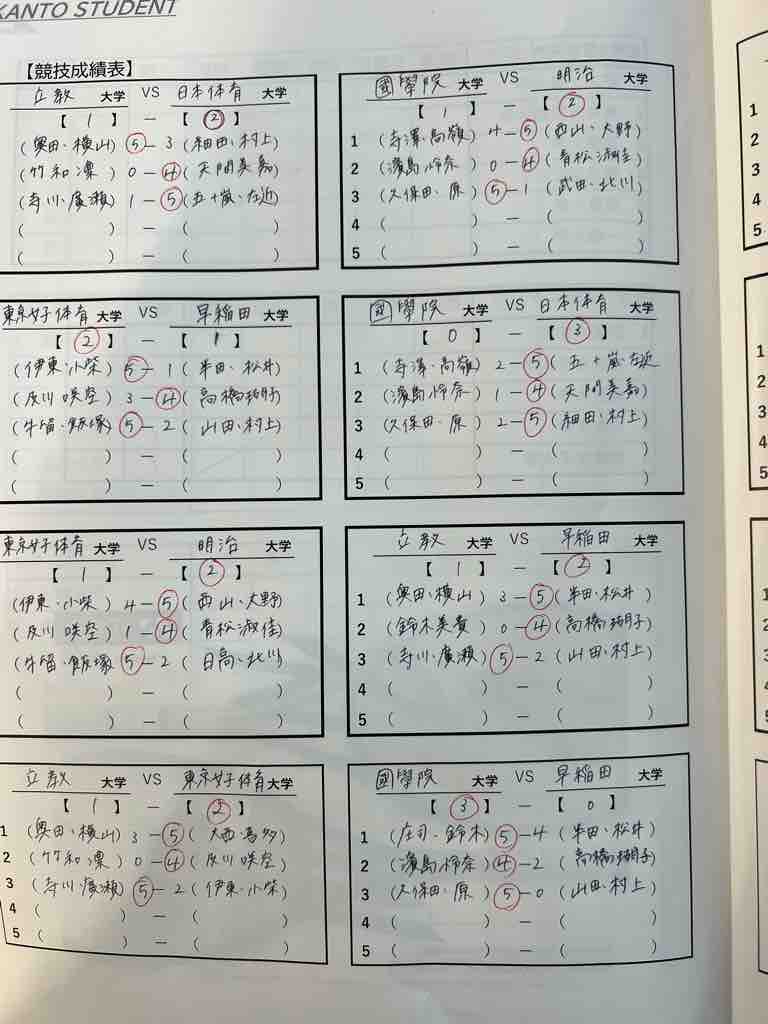 KANTO STUDENT
【競技成績表】
立教 大学 VS 日本体育 大学
【 1 】 — 【 ② 】
(奥田・横山) ⑤ — 3 (細田・村上)
(竹和凛) 0 — ④ (天間美嘉)
(寺川・廣瀬) 1 — ⑤ (五十嵐・左近)
( ) — ( )
( ) — ( )
國學院 大学 VS 明治 大学
【 1 】 — 【 ② 】
1 (寺澤・高嶺) 4 — ⑤ (西山・大野)
2 (濱島怜奈) 0 — ④ (青松淑佳)
3 (久保田・原) ⑤ — 1 (武田・北川)
4 ( ) — ( )
5 ( ) — ( )
東京女子体育 大学 VS 早稲田 大学
【 ② 】 — 【 1 】
(伊東・小柴) ⑤ — 1 (半田・松井)
(及川咲空) 3 — ④ (高橋瑚子)
(牛留・飯塚) ⑤ — 2 (山田・村上)
( ) — ( )
( ) — ( )
國學院 大学 VS 日本体育 大学
【 0 】 — 【 ③ 】
1 (寺澤・高嶺) 2 — ⑤ (五十嵐・左近)
2 (濱島怜奈) 1 — ④ (天間美嘉)
3 (久保田・原) 2 — ⑤ (細田・村上)
4 ( ) — ( )
5 ( ) — ( )
東京女子体育 大学 VS 明治 大学
【 1 】 — 【 ② 】
(伊東・小柴) 4 — ⑤ (西山・大野)
(及川咲空) 1 — ④ (青松淑佳)
(牛留・飯塚) ⑤ — 2 (日高・北川)
( ) — ( )
( ) — ( )
立教 大学 VS 早稲田 大学
【 1 】 — 【 ② 】
1 (奥田・横山) 3 — ⑤ (半田・松井)
2 (鈴木美貴) 0 — ④ (高橋瑚子)
3 (寺川・廣瀬) ⑤ — 2 (山田・村上)
4 ( ) — ( )
5 ( ) — ( )
立教 大学 VS 東京女子体育 大学
【 1 】 — 【 ② 】
1 (奥田・横山) 3 — ⑤ (大西・喜多)
2 (竹和凛) 0 — ④ (及川咲空)
3 (寺川・廣瀬) ⑤ — 2 (伊東・小柴)
4 ( ) — ( )
5 ( ) — ( )
國學院 大学 VS 早稲田 大学
【 ③ 】 — 【 0 】
1 (庄司・鈴木) ⑤ — 4 (半田・松井)
2 (濱島怜奈) ④ — 2 (高橋瑚子)
3 (久保田・原) ⑤ — 0 (山田・村上)
4 ( ) — ( )
5 ( ) — ( )
1
2
3
4
5
1
2
3
4
5
1
2
3
4